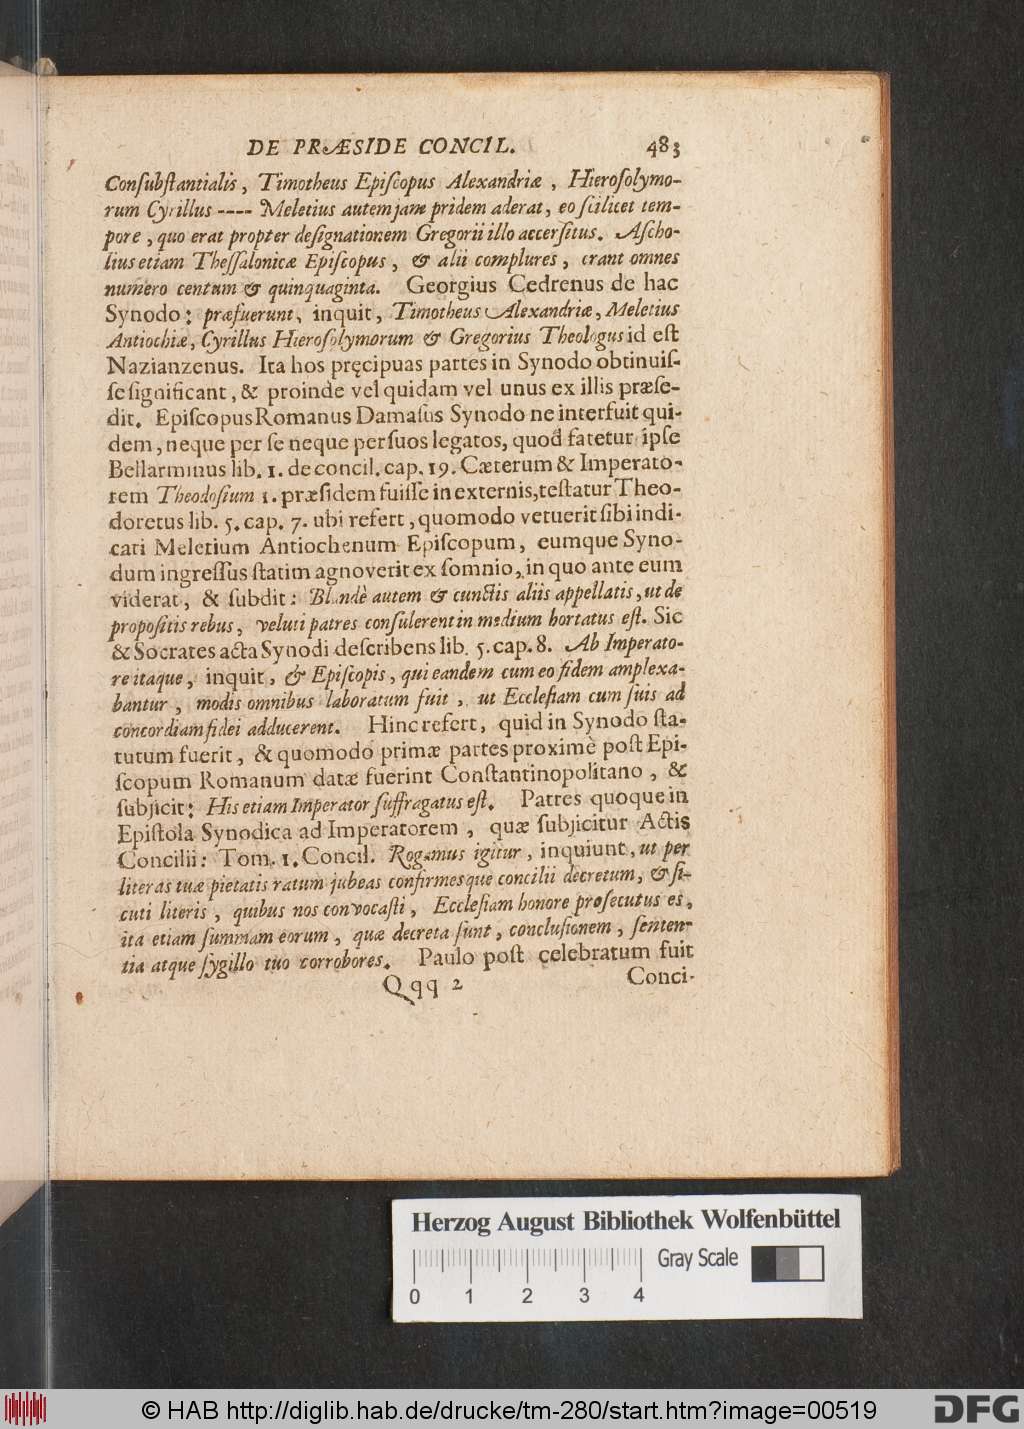 DE PRÆSIDE CONCIL. 483
Conſubſtantialis, Timotheus Epiſcopus Alexandriæ, Hieroſolymo-
rum Cyrillus ---- Meletius autem jam pridem aderat, eo ſcilicet tem-
pore, quo erat propter deſignationem Gregorii illo accerſitus. Aſcho-
lius etiam Theſſalonicæ Epiſcopus, & alii complures, erant omnes
numero centum & quinquaginta. Georgius Cedrenus de hac
Synodo: præfuerunt, inquit, Timotheus Alexandriæ, Meletius
Antiochiæ, Cyrillus Hieroſolymorum & Gregorius Theologus id eſt
Nazianzenus. Ita hos pręcipuas partes in Synodo obtinuiſ-
ſe ſignificant, & proinde vel quidam vel unus ex illis præſe-
dit. Epiſcopus Romanus Damaſus Synodo ne interfuit qui-
dem, neque per ſe neque per ſuos legatos, quod fatetur ipſe
Bellarminus lib. 1. de concil. cap. 19. Cæterum & Imperato-
rem Theodoſium 1. præſidem fuiſſe in externis, teſtatur Theo-
doretus lib. 5. cap. 7. ubi refert, quomodo vetuerit ſibi indi-
cari Meletium Antiochenum Epiſcopum, eumque Syno-
dum ingreſſus ſtatim agnoverit ex ſomnio, in quo ante eum
viderat, & ſubdit: Blandè autem & cunctis aliis appellatis, ut de
propoſitis rebus, veluti patres conſulerent in medium hortatus eſt. Sic
& Socrates acta Synodi deſcribens lib. 5. cap. 8. Ab Imperato-
re itaque, inquit, & Epiſcopis, qui eandem cum eo fidem amplexa-
bantur, modis omnibus laboratum fuit, ut Eccleſiam cum ſuis ad
concordiam fidei adducerent. Hinc refert, quid in Synodo ſta-
tutum fuerit, & quomodo primæ partes proximè poſt Epi-
ſcopum Romanum datæ fuerint Conſtantinopolitano, &
ſubjicit: His etiam Imperator ſuffragatus eſt. Patres quoque in
Epiſtola Synodica ad Imperatorem, quæ ſubjicitur Actis
Concilii: Tom. 1. Concil. Rogamus igitur, inquiunt, ut per
literas tuæ pietatis ratum jubeas confirmesque concilii decretum, & ſi-
cuti literis, quibus nos convocaſti, Eccleſiam honore proſecutus es,
ita etiam ſummam eorum, quæ decreta ſunt, concluſionem, ſenten-
tia atque ſygillo tuo corrobores. Paulo poſt celebratum fuit
Qqq 2 Conci-
Herzog August Bibliothek Wolfenbüttel
Gray Scale
0 1 2 3 4
© HAB http://diglib.hab.de/drucke/tm-280/start.htm?image=00519
DFG